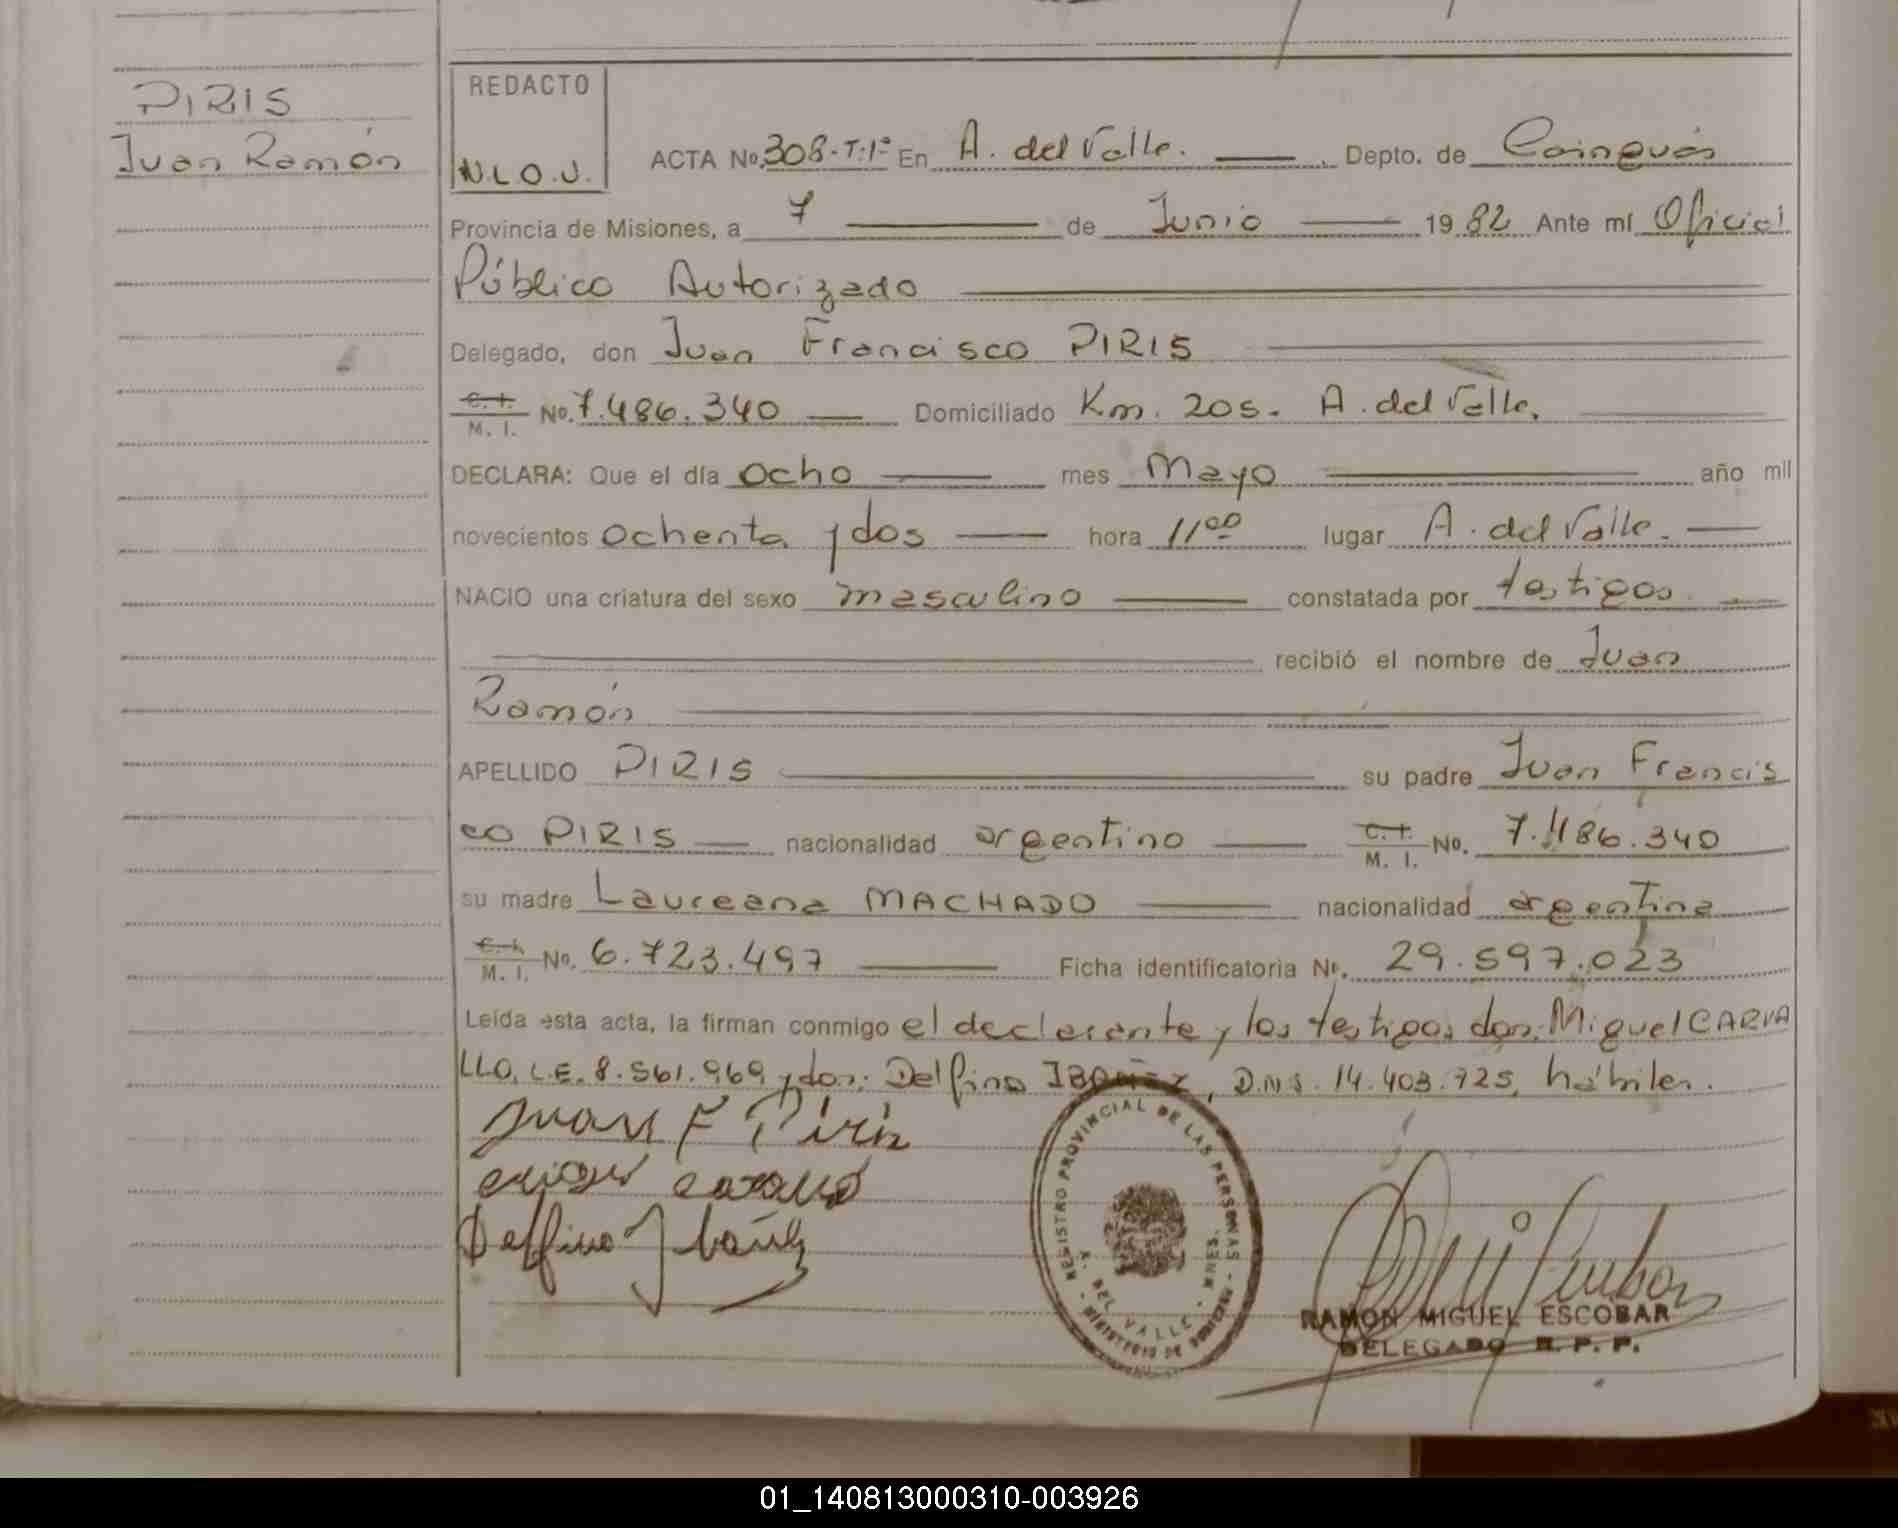 PIRIS
Juan Ramón
REDACTO
N.L.O.J.
ACTA No. 308-T:1º En A. del Valle. Depto. de Cainguás
Provincia de Misiones, a 7 de Junio 1982 Ante mí Oficial
Público Autorizado
Delegado, don Juan Francisco PIRIS
C. I. M. I. No. 7.486.340 Domiciliado Km. 205. A. del Valle.
DECLARA: Que el día ocho mes Mayo año mil
novecientos ochenta y dos hora 11 00 lugar A. del Valle.
NACIO una criatura del sexo masculino constatada por testigos
recibió el nombre de Juan
Ramón
APELLIDO PIRIS su padre Juan Francis
co PIRIS nacionalidad argentino C. I. M. I. No. 7.486.340
su madre Laureana MACHADO nacionalidad argentina
C. I. M. I. No. 6.723.497 Ficha identificatoria Nº. 29.597.023
Leída esta acta, la firman conmigo el declarante y los testigos don: Miguel CARVA
LLO, L.E. 8.561.969 y don: Delfino IBAÑEZ, D.N.I. 14.403.725, hábiles.
Juan F Piris
Delfino Ibáñez
REGISTRO PROVINCIAL DE LAS PERSONAS - MNES.
A. DEL VALLE
MINISTERIO DE
RAMON MIGUEL ESCOBAR
DELEGADO R. P. P.
01_140813000310-003926